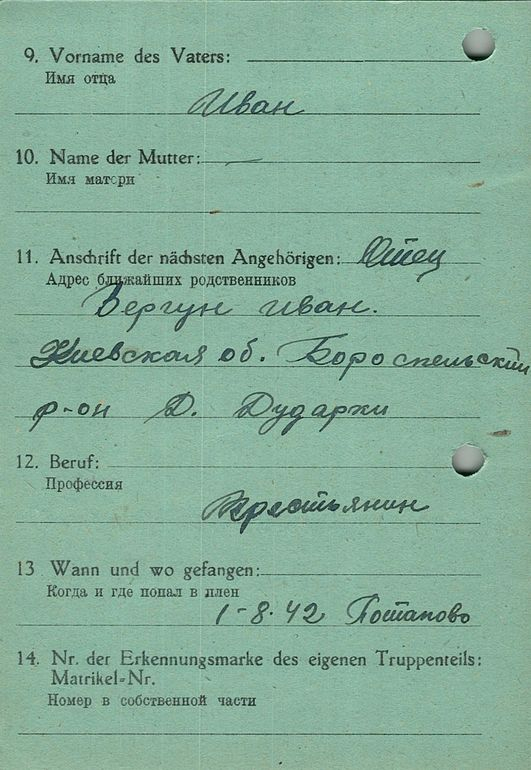 9. Vorname des Vaters:
Имя отца
Иван
10. Name der Mutter: —
Имя матери
11. Anschrift der nächsten Angehörigen: Отец
Адрес ближайших родственников
Вергун иван.
Киевская об. Бороспельский
р-он Д. Дударки
12. Beruf:
Профессия
Крестьянин
13 Wann und wo gefangen:
Когда и где попал в плен
1-8.42 Потапово
14. Nr. der Erkennungsmarke des eigenen Truppenteils:
Matrikel-Nr.
Номер в собственной части